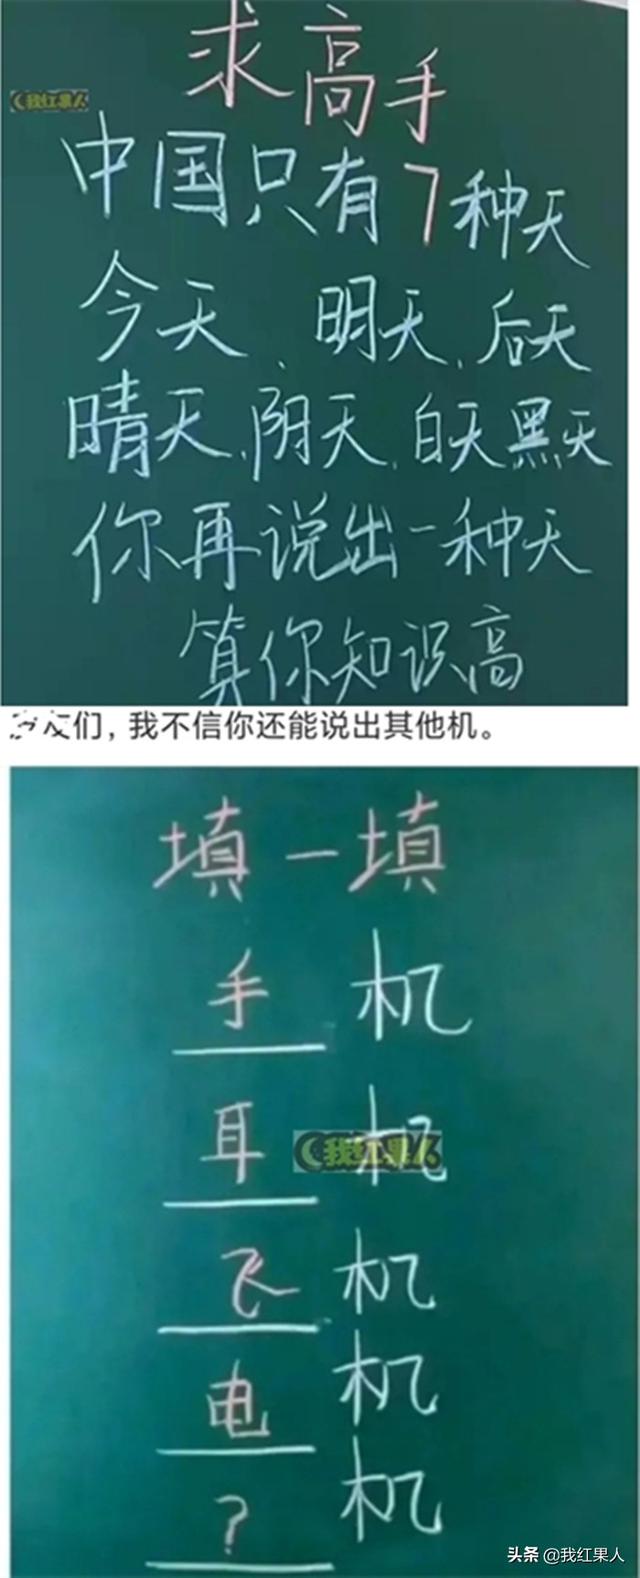 求高手
我红果人
中国只有7种天
今天、明天、后天
晴天、阴天、白天黑天
你再说出一种天
算你知识高
们，我不信你还能说出其他机。
填一填
手机
耳机
我红果人
飞机
电机
?机
头条 @我红果人